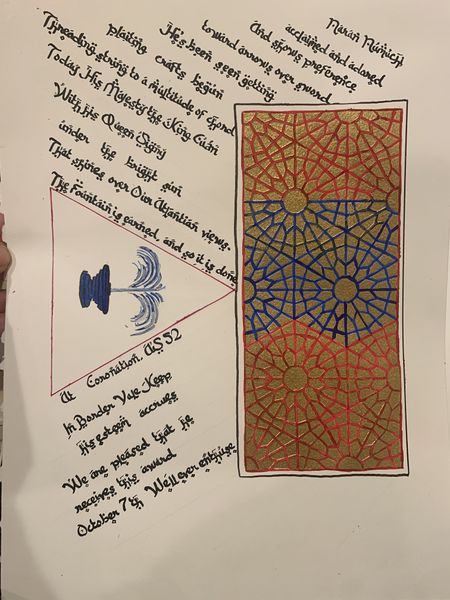 Naran Numich
acclaimed and adored
And shows preference
toward arrows over sword
He's been seen getting
plaiting crafts begun
Threading string to a multitude of chord
Today His Majesty the King Cuán
With his Queen Signy
under the bright sun
That shines over Our Atlantian views.
The Fountain is earned, and so it is done
At Coronation, AS 52
In Border Vale Keep
his esteem accrues
We are pleased that he
receives this award
October 7th We'll ever enthuse